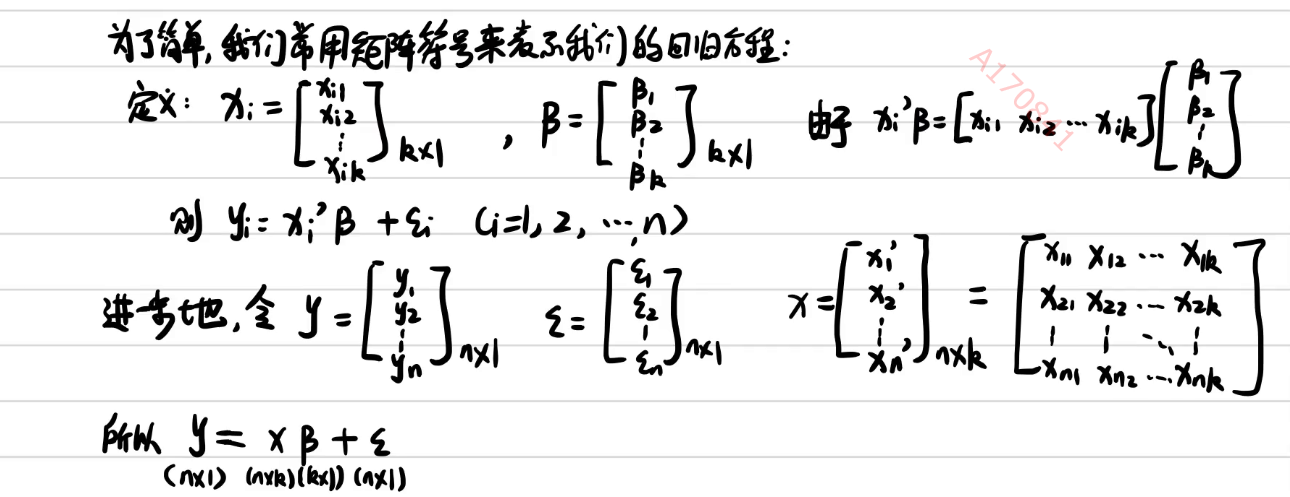 为了简单,我们常用矩阵符号来表示我们的回归方程:
定义: x_i = [x_{i1} x_{i2} ⋮ x_{ik}]_{k×1} , β = [β_1 β_2 ⋮ β_k]_{k×1} 由于 x_i'β = [x_{i1} x_{i2} ⋯ x_{ik}] [β_1 β_2 ⋮ β_k]
A170841
则 y_i = x_i'β + ε_i (i=1, 2, ⋯, n)
进一步地,令 y = [y_1 y_2 ⋮ y_n]_{n×1} ε = [ε_1 ε_2 ⋮ ε_n]_{n×1} x = [x_1' x_2' ⋮ x_n']_{n×k} = [x_{11} x_{12} ⋯ x_{1k} x_{21} x_{22} ⋯ x_{2k} ⋮ ⋮ ⋱ ⋮ x_{n1} x_{n2} ⋯ x_{nk}]
所以 y = x β + ε
(n×1) (n×k)(k×1) (n×1)